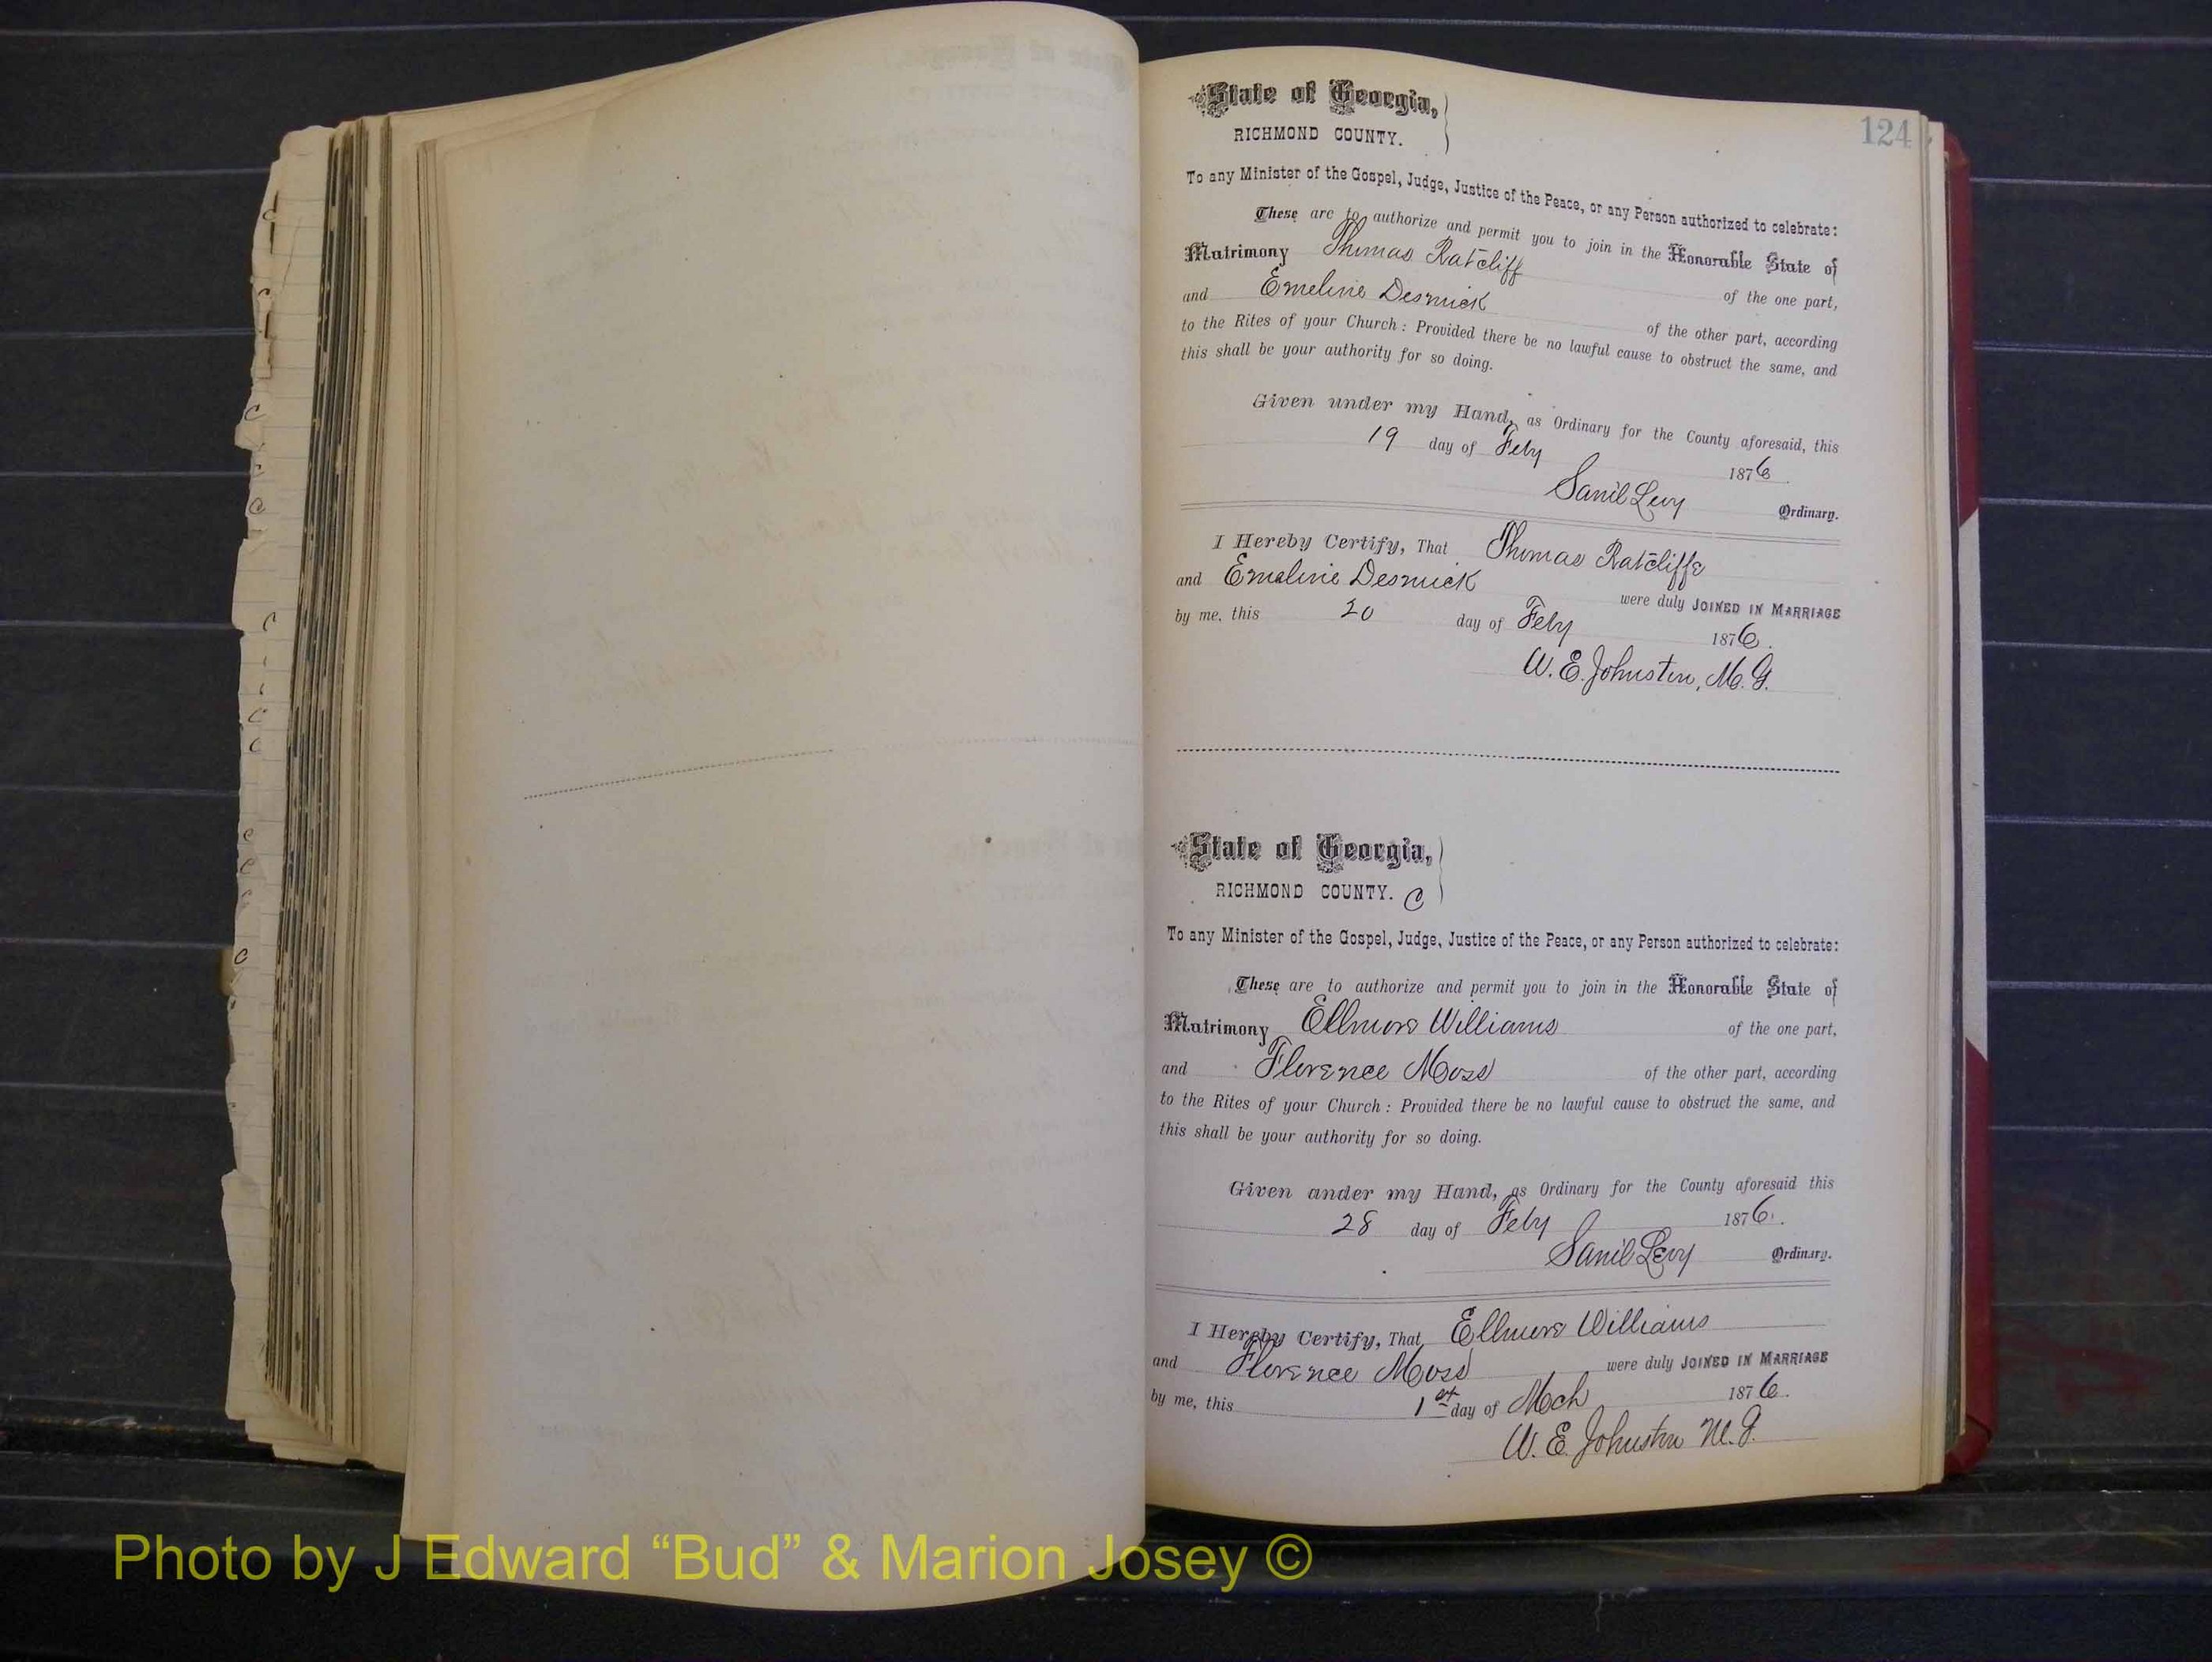 124
State of Georgia,
RICHMOND COUNTY.
To any Minister of the Gospel, Judge, Justice of the Peace, or any Person authorized to celebrate:
These are to authorize and permit you to join in the Honorable State of
Matrimony Thomas Ratcliff of the one part,
and Emeline Desmick of the other part, according
to the Rites of your Church: Provided there be no lawful cause to obstruct the same, and
this shall be your authority for so doing.
Given under my Hand, as Ordinary for the County aforesaid, this
19 day of Feby 1876.
Saml Levy Ordinary.
I Hereby Certify, That Thomas Ratcliffe
and Emeline Desmick were duly JOINED IN MARRIAGE
by me, this 20 day of Feby 1876.
W. E. Johnston, M. G.
State of Georgia,
RICHMOND COUNTY. C
To any Minister of the Gospel, Judge, Justice of the Peace, or any Person authorized to celebrate:
These are to authorize and permit you to join in the Honorable State of
Matrimony Ellmore Williams of the one part,
and Florence Moss of the other part, according
to the Rites of your Church: Provided there be no lawful cause to obstruct the same, and
this shall be your authority for so doing.
Given under my Hand, as Ordinary for the County aforesaid this
28 day of Feby 1876.
Saml Levy Ordinary.
I Hereby Certify, That Ellmore Williams
and Florence Moss were duly JOINED IN MARRIAGE
by me, this 1st day of Mch 1876.
W. E. Johnston M. G.
Photo by J Edward “Bud” & Marion Josey ©